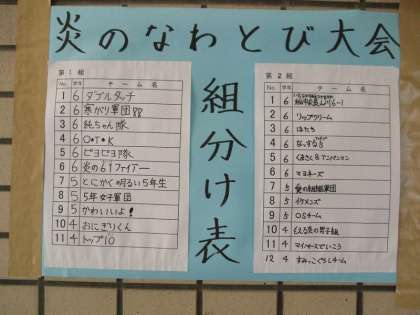 炎のなわとび大会
組分け表
第1組
No. 学年 チーム名
1 6 ダブルタッチ
2 6 寒がり軍団
3 6 純ちゃん隊
4 6 O*T*K
5 6 ピヨピヨ隊
6 6 炎の61ファイアー
7 5 とにかく明るい5年生
8 5 5年女子軍団
9 5 かわいいよ!
10 4 おにぎりくん
11 4 トップ10
第2組
No. 学年 チーム名
1 6
2 6 リップクリーム
3 6 はたち
4 6
5 6 くまさん&アンパンマン
6 6 マヨネーズ
7 5
8 5 イケメンズ
9 5 OSチーム
10 4 もえる炎の男子組
11 4 マイペースでいこう
12 4 すみっこぐらしチーム